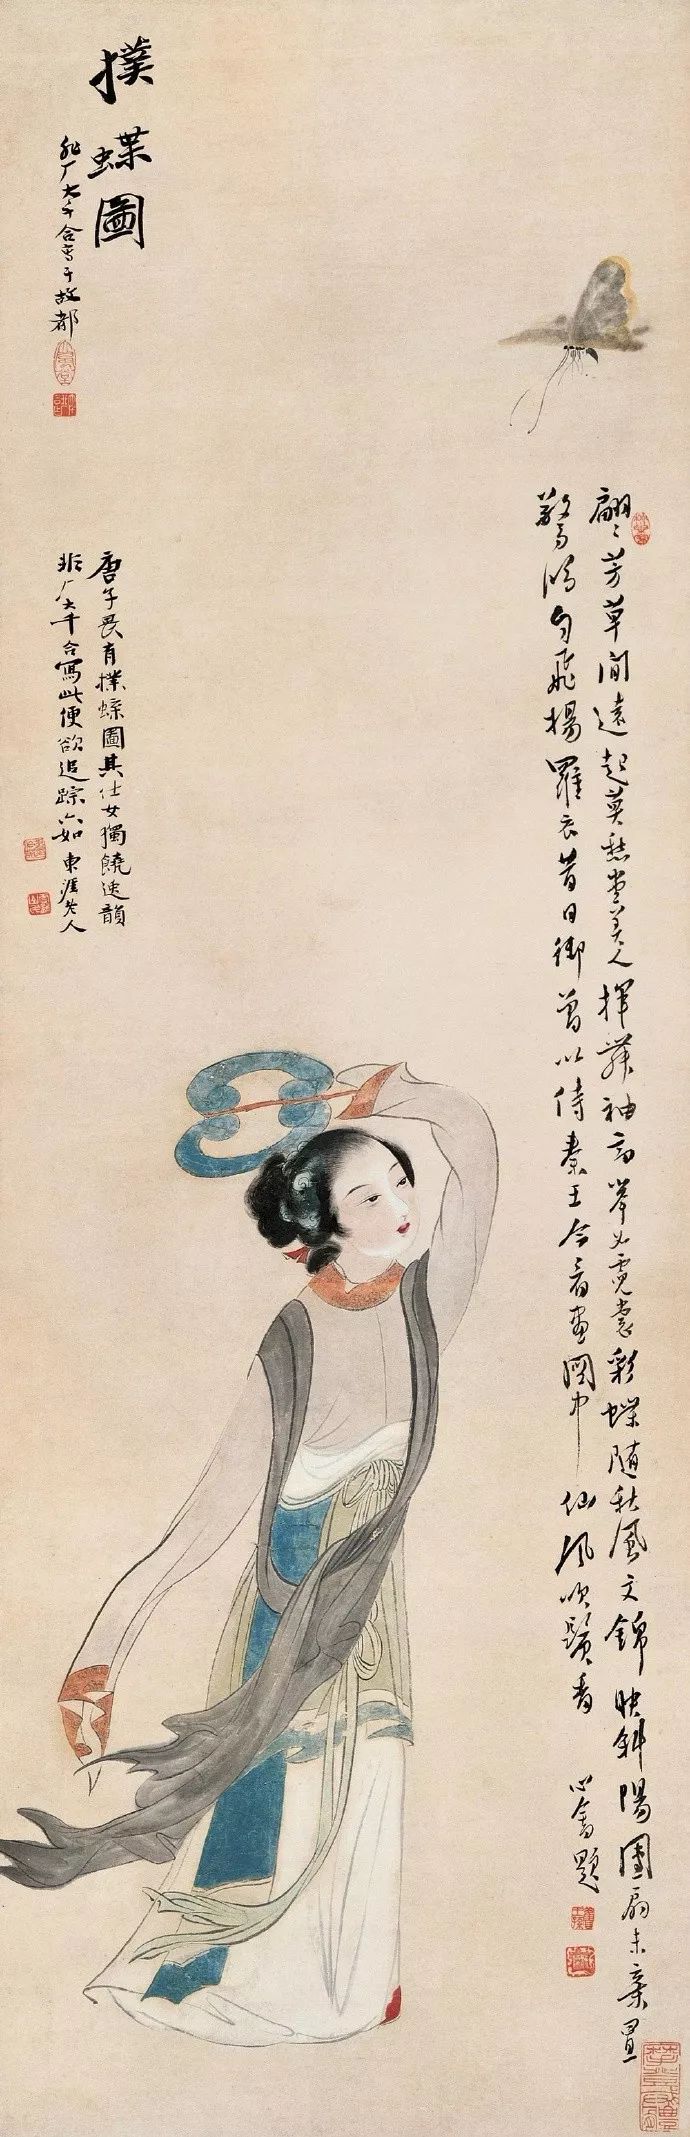 撲蝶圖
非厂大千合寫于故都
翩〻芳草間遠起莫愁堂美人揮舞袖高舉如霓裳彩蝶隨秋風文錦映斜陽團扇未棄置
驚鴻勻飛揚羅衣昔日御曾以侍秦王今看畫圖中仙風吹鬢香
心畬題
唐子畏有撲蝶圖其仕女獨饒逸韻
非厂大千合寫此便欲追踪六如東涯老人